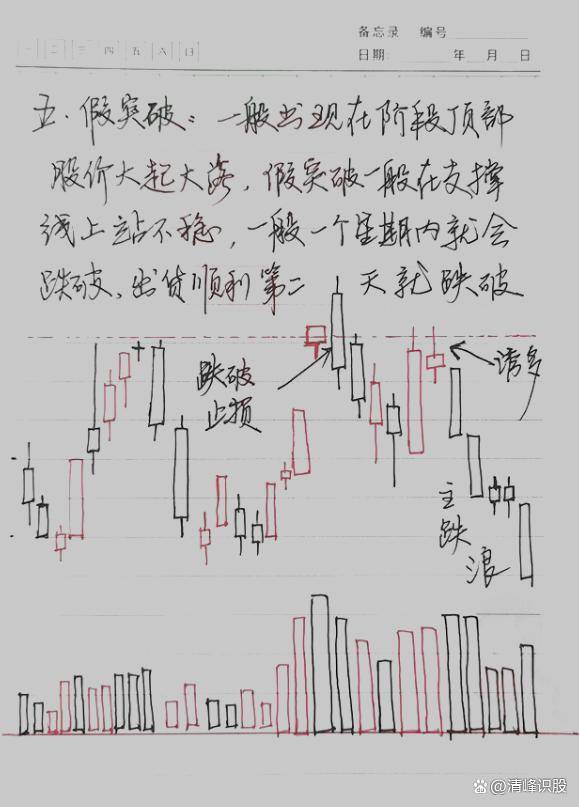 备忘录 编号
一 二 三 四 五 六 日
日期: 年 月 日
五.假突破:一般出现在阶段顶部
股价大起大落,假突破一般在支撑
线上站不稳,一般一个星期内就会
跌破、出货顺利第二 天就跌破
跌破
止损
诱多
主
跌
浪
清峰识股